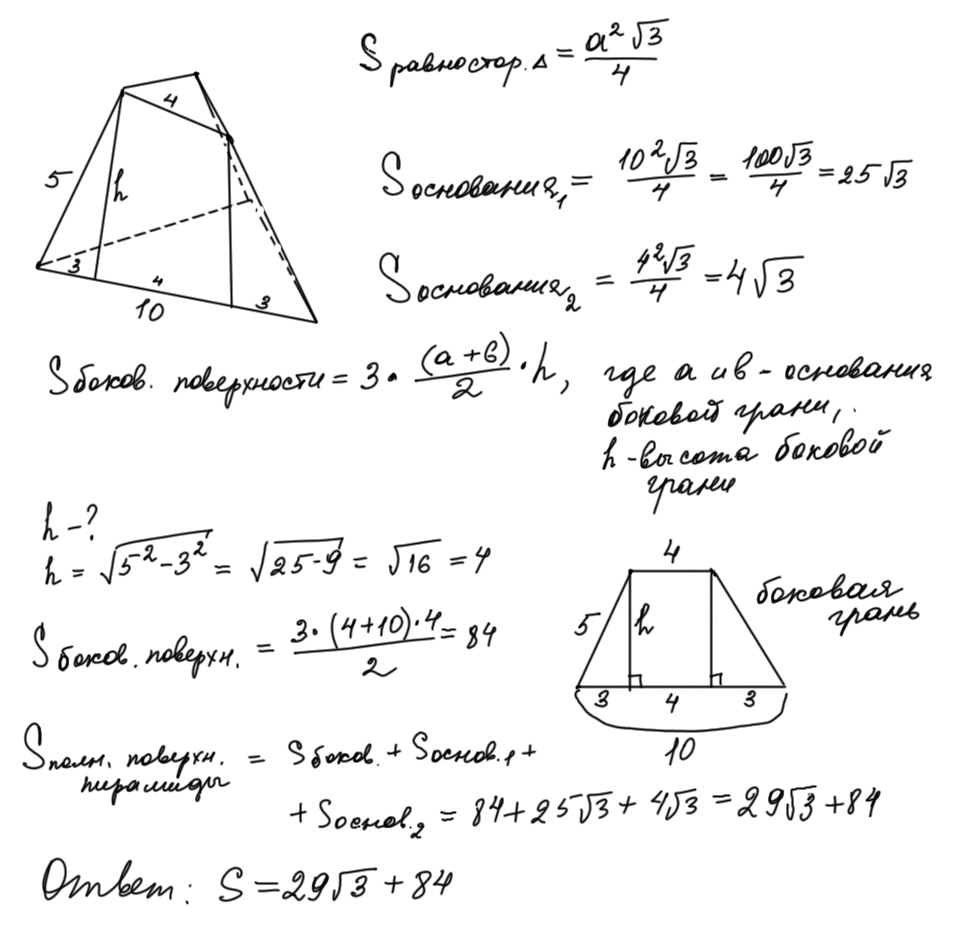 S равностор. Δ = a²√3/4
4
5
h
3
4
3
10
S основания₁ = 10²√3/4 = 100√3/4 = 25√3
S основания₂ = 4²√3/4 = 4√3
S боков. поверхности = 3 · (a + b)/2 · h, где a и b - основания
боковой грани,
h - высота боковой
грани
h - ?
h = √5² - 3² = √25 - 9 = √16 = 4
S боков. поверхн. = 3 · (4 + 10) · 4/2 = 84
4
5
h
3
4
3
10
боковая
грань
S полн. поверхн. пирамиды = S боков. + S основ.₁ +
+ S основ.₂ = 84 + 25√3 + 4√3 = 29√3 + 84
Ответ: S = 29√3 + 84